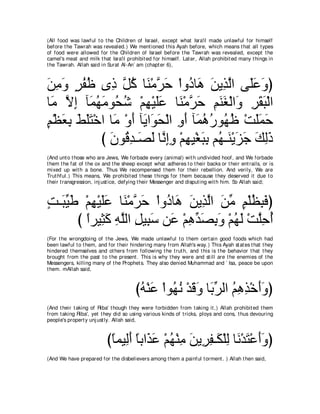 (All food was lawful to the Children of Israel, except what Isra'il made unlawful for himself
before the Tawrah was revealed.) We mentioned this Ayah before, which means that all types
of food were allowed for the Children of Israel before the Tawrah was revealed, except the
camel's meat and milk that Isra'il prohibited for himself. Later, Allah prohibited many things in
the Tawrah. Allah said in Surat Al-An`am (chapter 6),
(وَعَلَى الَّذِينَ هَادُواْ حَرَّمْنَا كُلَّ ذِى ظُفُرٍ وَمِنَ
الْبَقَرِ وَالْغَنَمِ حَرَّمْنَا عَلَيْهِمْ شُحُومَهُمَآ إِلاَّ مَا
حَمَلَتْ ظُهُورُهُمَآ أَوِ الْحَوَايَآ أَوْ مَا اخْتَلَطَ بِعَظْمٍ
ذَلِكَ جَزَيْنَـهُم بِبَغْيِهِمْ وِإِنَّا لَصَـدِقُونَ )
(And unto those who are Jews, We forbade every (animal) with undivided hoof, and We forbade
them the fat of the ox and the sheep except what adheres to their backs or their entrails, or is
mixed up with a bone. Thus We recompensed them for their rebellion. And verily, We are
Truthful.) This means, We prohibited these things for them because they deserved it due to
their transgression, injustice, defying their Messenger and disputing with him. So Allah said;
(فَبِظُلْمٍ مِّنَ الَّذِينَ هَادُواْ حَرَّمْنَا عَلَيْهِمْ طَيِّبَـتٍ
أُحِلَّتْ لَهُمْ وَبِصَدِّهِمْ عَن سَبِيلِ اللَّهِ كَثِيراً )
(For the wrongdoing of the Jews, We made unlawful to them certain good foods which had
been lawful to them, and for their hindering many from Allah's way.) This Ayah states that they
hindered themselves and others from following the truth, and this is the behavior that they
brought from the past to the present. This is why they were and still are the enemies of the
Messengers, killing many of the Prophets. They also denied Muhammad and `Isa, peace be upon
them. mAllah said,
(وَأَخْذِهِمُ الرِّبَا وَقَدْ نُهُواْ عَنْهُ)
(And their taking of Riba' though they were forbidden from taking it,) Allah prohibited them
from taking Riba', yet they did so using various kinds of tricks, ploys and cons, thus devouring
people's property unjustly. Allah said,
(وَأَعْتَدْنَا لِلْكَـفِرِينَ مِنْهُمْ عَذَاباً أَلِيماً)
(And We have prepared for the disbelievers among them a painful torment. ) Allah then said,